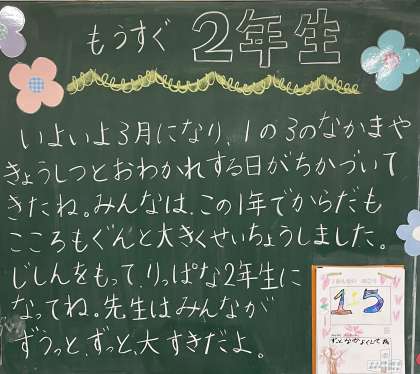 もうすぐ 2年生
いよいよ3月になり、1の3のなかまや
きょうしつとおわかれする日がちかづいて
きたね。みんなは、この1年でからだも
こころもぐんと大きくせいちょうしました。
じしんをもって、りっぱな2年生に
なってね。先生はみんなが
ずうっとずっと、大すきだよ。
15
ずっとなかよくしてね